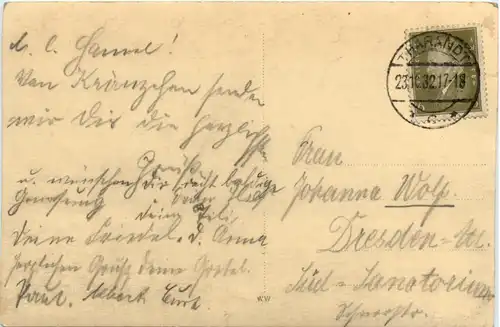 M. l. Hannel!
Von Kränzchen senden
wir Dir die herzlichsten
Grüße
u. wünschen Dir recht baldige
Genesung
deine Lili,
Deine Friedel. d. Anna
herzlichen Gruß deine Gretel.
Paul. Albert Curt.
THARANDT
23.10.32.17-18
c
Frau
Johanna Wolf.
Dresden-A.
Süd-Sanatorium